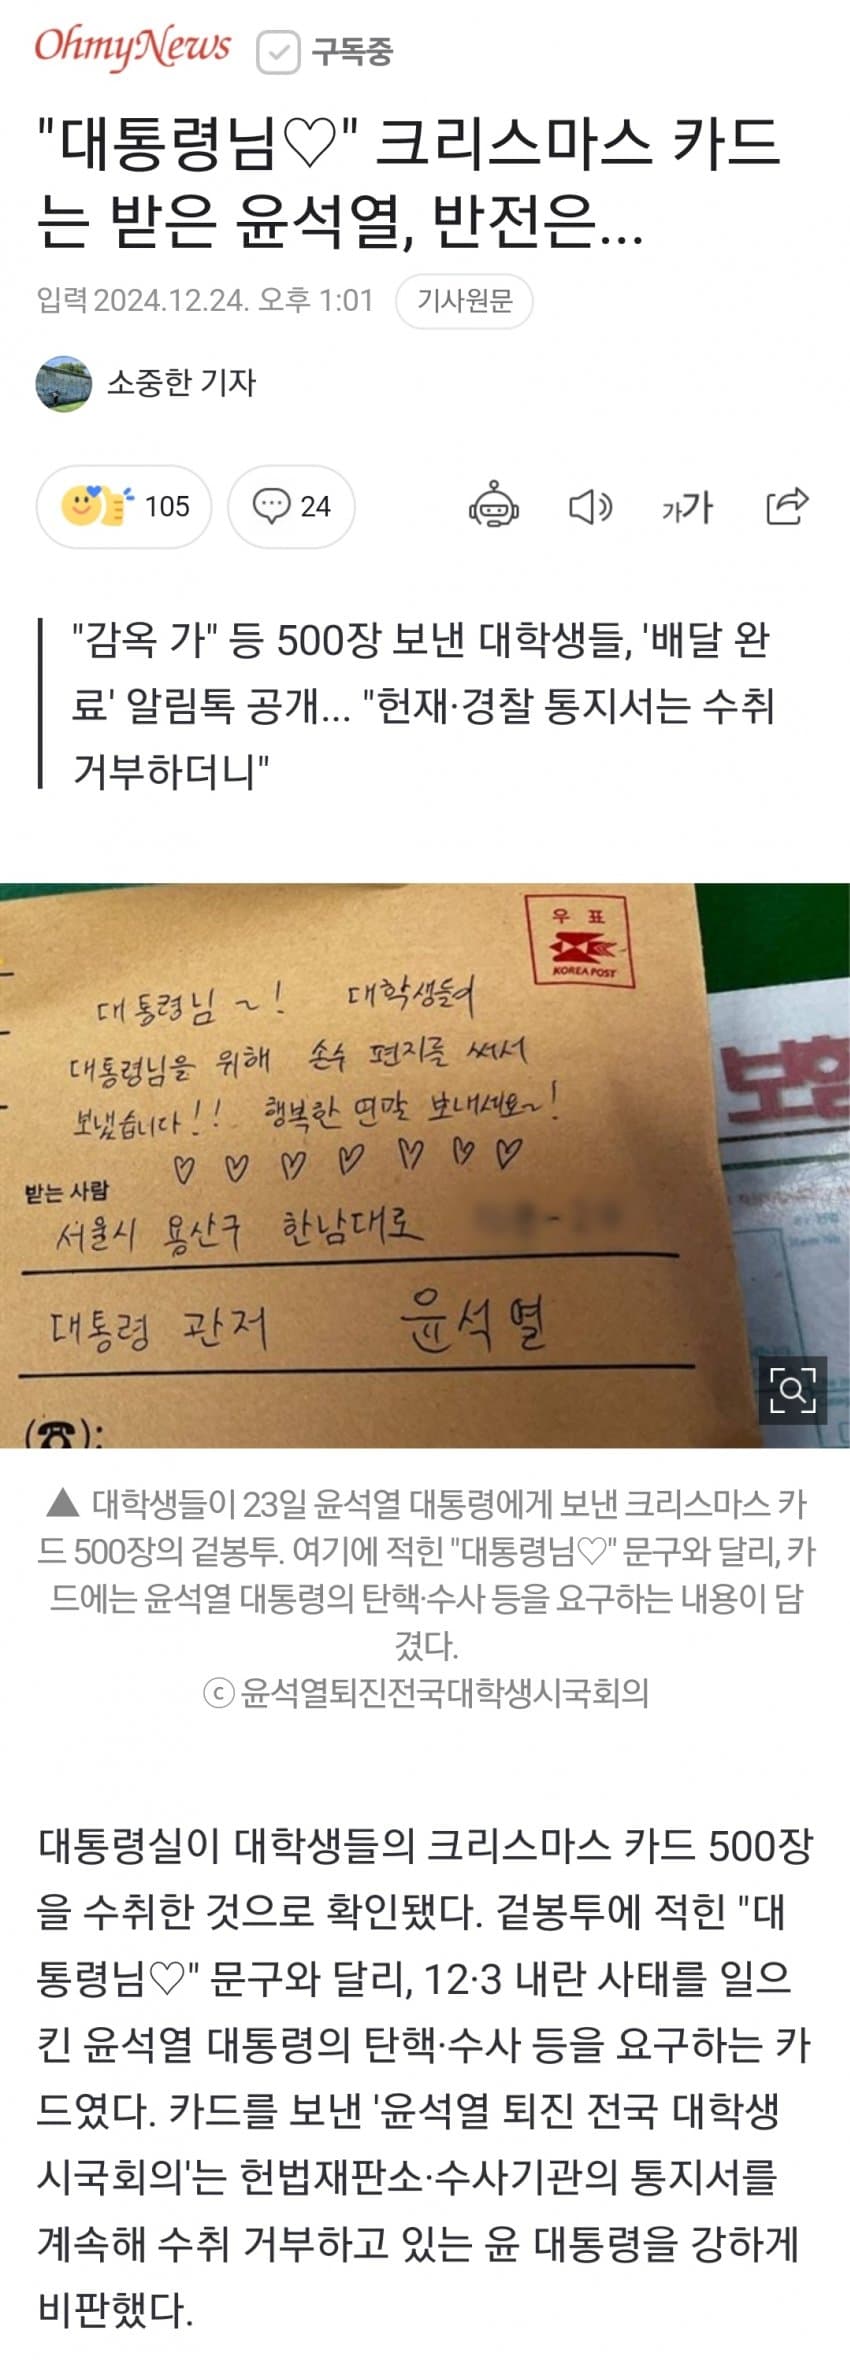 OhmyNews 구독중
"대통령님♡" 크리스마스 카드
는 받은 윤석열, 반전은...
입력 2024.12.24. 오후 1:01 기사원문
소중한 기자
105 24 가가
"감옥 가" 등 500장 보낸 대학생들, '배달 완
료' 알림톡 공개... "헌재·경찰 통지서는 수취
거부하더니"
우 표
KOREA POST
대통령님 ~! 대학생들이
대통령님을 위해 손수 편지를 써서
보냈습니다!! 행복한 연말 보내세요~!
♡ ♡ ♡ ♡ ♡ ♡ ♡
받는 사람
서울시 용산구 한남대로
대통령 관저 윤석열
(☎):
보험
▲ 대학생들이 23일 윤석열 대통령에게 보낸 크리스마스 카
드 500장의 겉봉투. 여기에 적힌 "대통령님♡" 문구와 달리, 카
드에는 윤석열 대통령의 탄핵·수사 등을 요구하는 내용이 담
겼다.
ⓒ 윤석열퇴진전국대학생시국회의
대통령실이 대학생들의 크리스마스 카드 500장
을 수취한 것으로 확인됐다. 겉봉투에 적힌 "대
통령님♡" 문구와 달리, 12·3 내란 사태를 일으
킨 윤석열 대통령의 탄핵·수사 등을 요구하는 카
드였다. 카드를 보낸 '윤석열 퇴진 전국 대학생
시국회의'는 헌법재판소·수사기관의 통지서를
계속해 수취 거부하고 있는 윤 대통령을 강하게
비판했다.